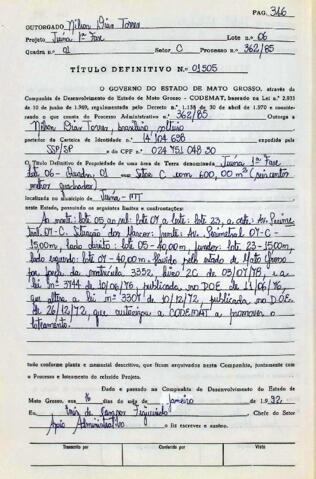 PAG. 346
OUTORGADO Nilson Dias Torres
Projeto Juína 1ª Fase Lote n.º 06
Quadra n.º 01 Setor C Processo n.º 362/85
TÍTULO DEFINITIVO N.º 01505
O GOVERNO DO ESTADO DE MATO GROSSO, através da
Companhia de Desenvolvimento do Estado de Mato Grosso - CODEMAT, baseado na Lei n.º 2.933
de 10 de junho de 1969, regulamentado pelo Decreto n.º 1.138 de 30 de abril de 1970 e considerando
o que consta do Processo Administrativo n.º 362/85. Outorga a
Nilson Dias Torres, brasileiro, solteiro
portador da Carteira de Identidade n.º 14.104 696 expedida pela
SSP/SP e do CPF n.º 024 751 048 30
O Título Definitivo de Propriedade de uma área de Terra denominada Juína 1ª Fase
Lote 06 - Quadra 01 Setor C com 600,00 m² (seiscentos
metros quadrados)
localizada no município de Juína - MT
neste Estado, possuindo os seguintes limites e confrontações:
Ao norte: lote 05 ao sul: lote 07 a leste: lote 23, a oeste: Av. Perime
tral 07-C. Situação dos Marcos: frente: Av. Perimetral 07-C -
15,00m, lado direito: lote 05 - 40,00m, fundos: lote 23 - 15,00m,
lado esquerdo: lote 07 - 40,00m. Havido pelo estado de Mato Grosso
por força da matrícula 3352, livro 2C de 03/07/78, e a
lei nº 3744 de 10/06/76, publicada no DOE de 11/06/76,
que altera a lei nº 3307 de 10/12/72, publicada no D.O.E
de 26/12/72, que autoriza a CODEMAT a promover o
loteamento.
tudo conforme planta e memorial descritivo, que ficam arquivados nesta Companhia, juntamente com
o Processo e loteamento do referido Projeto.
Dado e passado na Companhia de Desenvolvimento do Estado de
Mato Grosso, aos 16 dias do mês de Janeiro de 1.992.
Eu, Inês de Campos Figueiredo Chefe do Setor
Apoio Administrativo o fiz escrever e assino.
Transcrito por Conferido por Visto